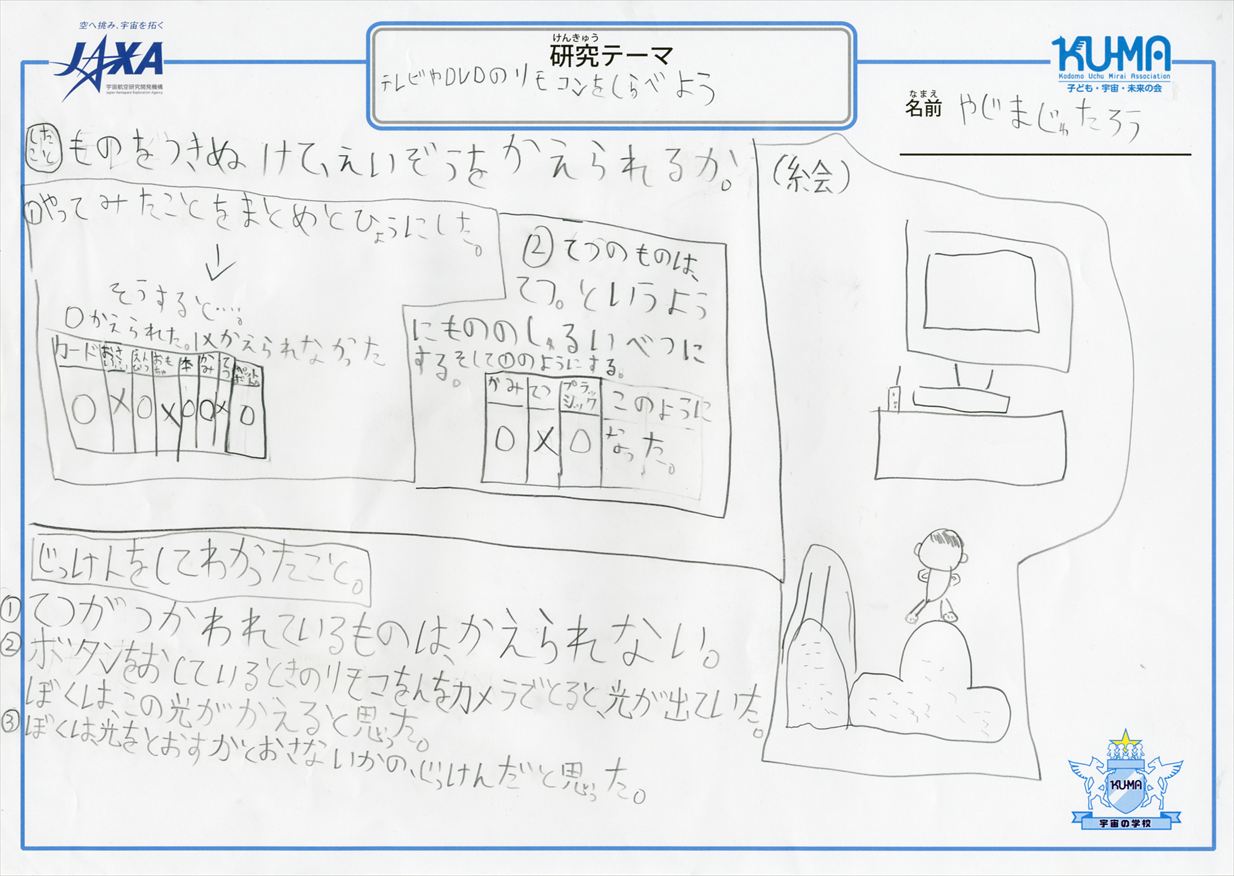 空へ挑み、宇宙を拓く
JAXA
宇宙航空研究開発機構
Japan Aerospace Exploration Agency
けんきゅう
研究テーマ
テレビやDVDのリモコンをしらべよう
KU-MA
Kodomo Uchu Mirai Association
子ども・宇宙・未来の会
なまえ
名前 やじまじゅたろう
したこと ものをつきぬけて、えいぞうをかえられるか。
(絵)
①やってみたことをまとめとひょうにした。
↓
そうすると…。
○かえられた。×かえられなかった
カード えんぴつ おもちゃ 本 かみ てつ ペットボトル
○ × ○ × ○ ○ × ○
②てつのものは、
てつ。というよう
にもののしゅるいべつに
する。そして①のようにする。
かみ てつ プラッシック このように
○ × ○ なった。
じっけんをしてわかったこと。
①てつがつかわれているものは、かえられない。
②ボタンをおしているときのリモコをんをカメラでとると、光が出ていた。
ぼくは、この光がかえると思った。
③ぼくは、光をとおすかとおさないかの、じっけんだと思った。
KUMA
宇宙の学校